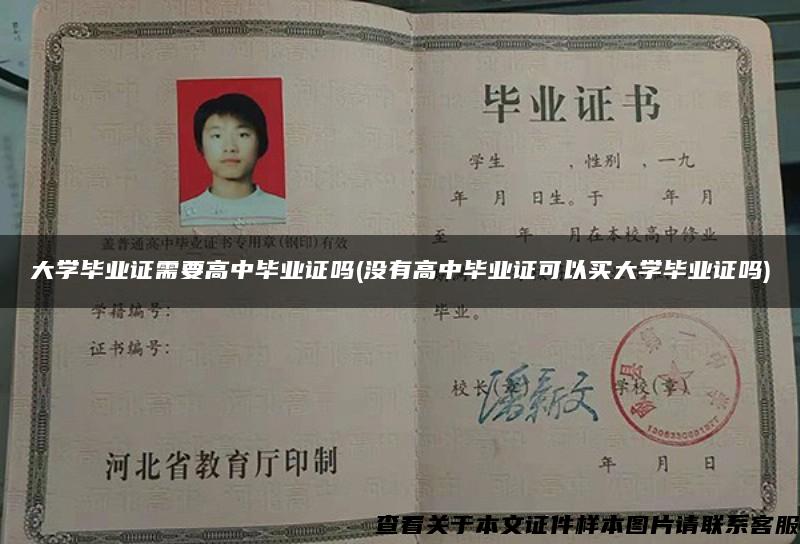 毕业证书
学生 ,性别 ,一九
年 月 日生。于 年 月
至 年 月在本校高中修业
盖普通高中毕业证书专用章(钢印)有效
大学毕业证需要高中毕业证吗(没有高中毕业证可以买大学毕业证吗)
学籍编号:
毕业。
证书编号:
校长(章)
学校(章)
河北省教育厅印制
年 月 日
查看关于本文证件样本图片请联系客服